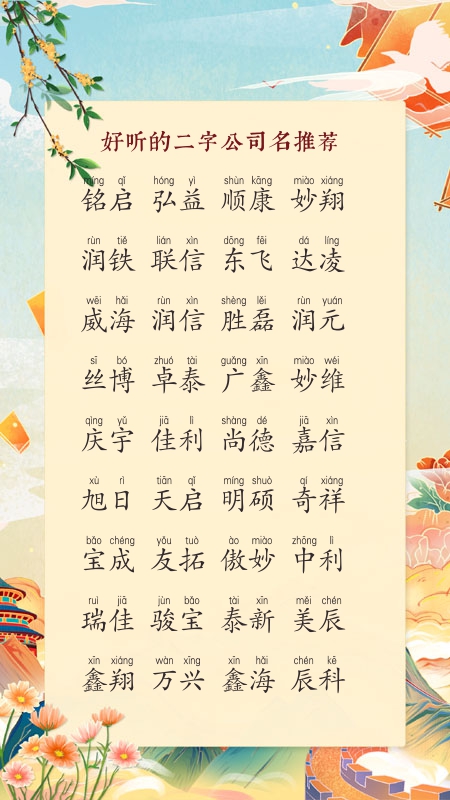 好听的二字公司名推荐
míng qǐ hóng yì shùn kāng miào xiáng
铭启 弘益 顺康 妙翔
rùn tiě lián xìn dōng fēi dá líng
润铁 联信 东飞 达凌
wēi hǎi rùn xìn shèng lěi rùn yuán
威海 润信 胜磊 润元
sī bó zhuó tài guǎng xīn miào wéi
丝博 卓泰 广鑫 妙维
qìng yǔ jiā lì shàng dé jiā xìn
庆宇 佳利 尚德 嘉信
xù rì tiān qǐ míng shuò qí xiáng
旭日 天启 明硕 奇祥
bǎo chéng yǒu tuò ào miào zhōng lì
宝成 友拓 傲妙 中利
ruì jiā jùn bǎo tài xīn měi chén
瑞佳 骏宝 泰新 美辰
xīn xiáng wàn xīng xīn hǎi chén kē
鑫翔 万兴 鑫海 辰科